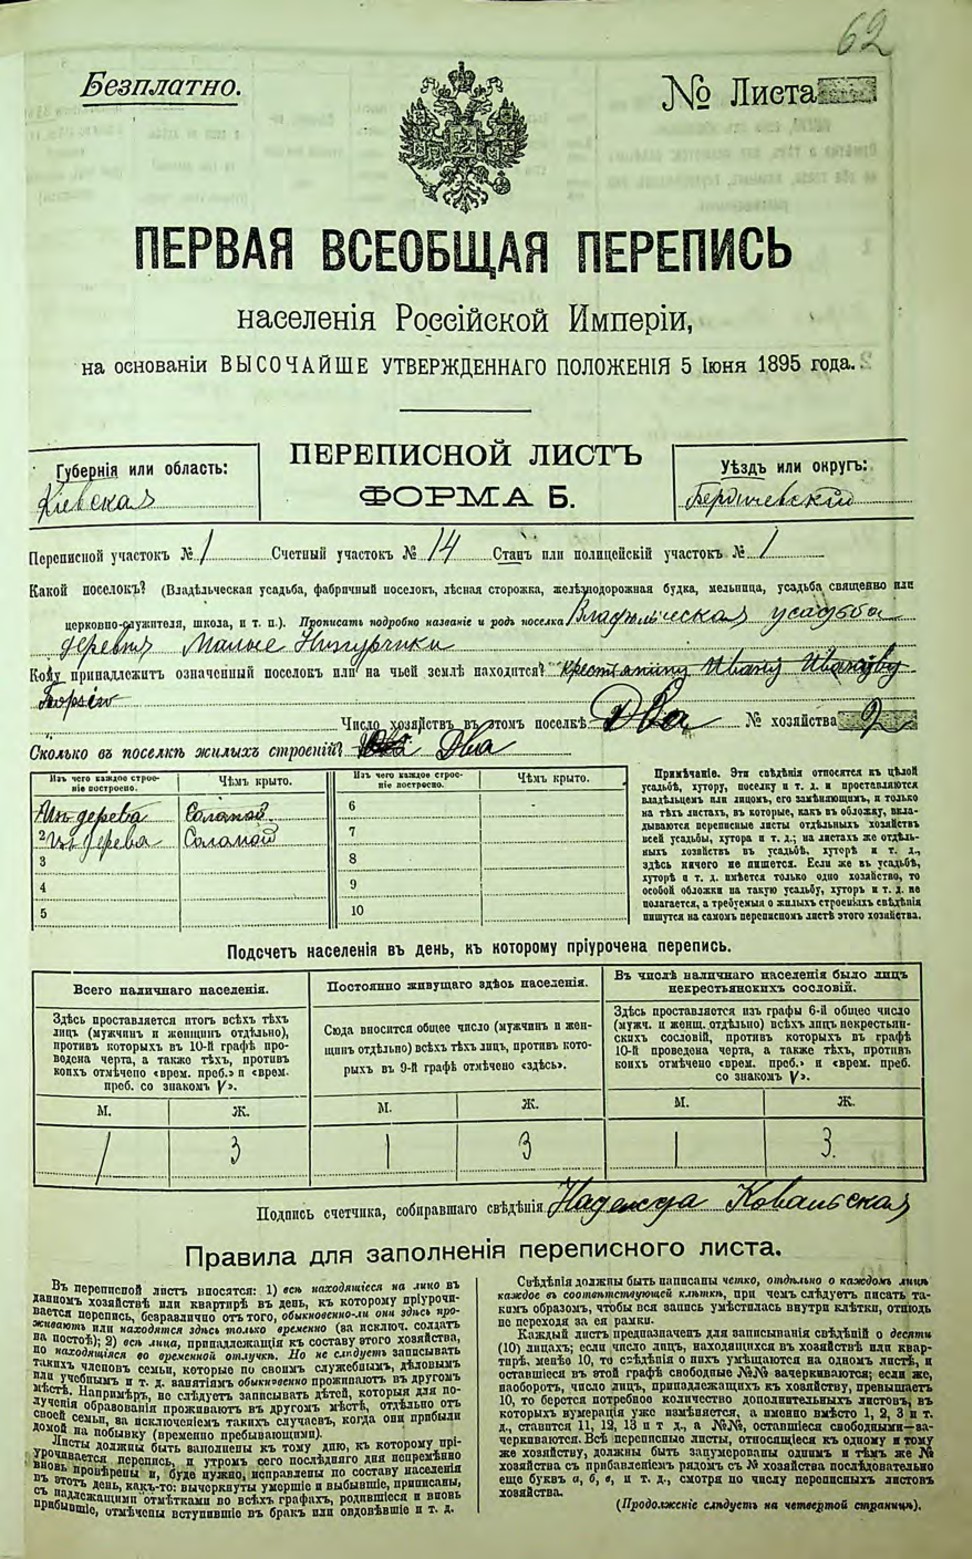 62
Безплатно.
№ Листа
ПЕРВАЯ ВСЕОБЩАЯ ПЕРЕПИСЬ
населенія Россійской Имперіи,
на основаніи ВЫСОЧАЙШЕ УТВЕРЖДЕННАГО ПОЛОЖЕНІЯ 5 Іюня 1895 года.
Губернія или область:
Кіевская
ПЕРЕПИСНОЙ ЛИСТЪ
ФОРМА Б.
Уѣздъ или округъ:
Бердичевскій
Переписной участокъ № 1 Счетный участокъ № 14 Станъ или полицейскій участокъ № 1
Какой поселокъ? (Владѣльческая усадьба, фабричный поселокъ, лѣсная сторожка, желѣзнодорожная будка, мельница, усадьба священно или
церковно-служителя, школа, и т. п.). Прописать подробно названіе и родъ поселка Владѣльческая усадьба
деревня Малые Низгурчики
Кому принадлежитъ означенный поселокъ или на чьей землѣ находится? крестьянину Ивану
Число хозяйствъ въ этомъ поселкѣ Два № хозяйства 2
Сколько въ поселкѣ жилыхъ строеній? Два
Изъ чего каждое строе-
ніе построено.
Чѣмъ крыто.
Изъ чего каждое строе-
ніе построено.
Чѣмъ крыто.
1 Изъ дерева Соломой
2 Изъ дерева Соломой
3
4
5
6
7
8
9
10
Примѣчаніе. Эти свѣдѣнія относятся къ цѣлой
усадьбѣ, хутору, поселку и т. д. и проставляются
владѣльцемъ или лицомъ, его замѣняющимъ, и только
на тѣхъ листахъ, въ которые, какъ въ обложку, вкла-
дываются переписные листы отдѣльныхъ хозяйствъ
всей усадьбы, хутора и т. д.; на листахъ же отдѣль-
ныхъ хозяйствъ въ усадьбѣ, хуторѣ и т. д.,
здѣсь ничего не пишется. Если же въ усадьбѣ,
хуторѣ и т. д. имѣется только одно хозяйство, то
особой обложки на такую усадьбу, хуторъ и т. д. не
полагается, а требуемыя о жилыхъ строеніяхъ свѣдѣнія
пишутся на самомъ переписномъ листѣ этого хозяйства.
Подсчетъ населенія въ день, къ которому пріурочена перепись.
Всего наличнаго населенія.
Здѣсь проставляется итогъ всѣхъ тѣхъ
лицъ (мужчинъ и женщинъ отдѣльно),
противъ которыхъ въ 10-й графѣ про-
ведена черта, а также тѣхъ, противъ
коихъ отмѣчено «врем. преб.» и «врем.
преб. со знакомъ V».
Постоянно живущаго здѣсь населенія.
Сюда вносится общее число (мужчинъ и жен-
щинъ отдѣльно) всѣхъ тѣхъ лицъ, противъ кото-
рыхъ въ 9-й графѣ отмѣчено «здѣсь».
Въ числѣ наличнаго населенія было лицъ
некрестьянскихъ сословій.
Здѣсь проставляется изъ графы 6-й общее число
(мужч. и женщ. отдѣльно) всѣхъ лицъ некрестьян-
скихъ сословій, противъ которыхъ въ графѣ
10-й проведена черта, а также тѣхъ, противъ
коихъ отмѣчено «врем. преб.» и «врем. преб.
со знакомъ V».
М. Ж. М. Ж. М. Ж.
1 3 1 3 1 3.
Подпись счетчика, собиравшаго свѣдѣнія Надежда Ковальская
Правила для заполненія переписного листа.
Въ переписной листъ вносятся: 1) всѣ находящіеся на лицо въ
данномъ хозяйствѣ или квартирѣ въ день, къ которому пріурочи-
вается перепись, безразлично отъ того, обыкновенно-ли они здѣсь про-
живаютъ или находятся здѣсь только временно (за исключ. солдатъ
на постоѣ); 2) всѣ лица, принадлежащія къ составу этого хозяйства,
но находящіяся во временной отлучкѣ. Но не слѣдуетъ записывать
такихъ членовъ семьи, которые по своимъ служебнымъ, дѣловымъ
или учебнымъ и т. д. занятіямъ обыкновенно проживаютъ въ другомъ
мѣстѣ. Напримѣръ, не слѣдуетъ записывать дѣтей, которыя для по-
лученія образованія проживаютъ въ другомъ мѣстѣ, отдѣльно отъ
своей семьи, за исключеніемъ такихъ случаевъ, когда они прибыли
домой на побывку (временно пребывающими).
Листы должны быть заполнены къ тому дню, къ которому прі-
урочивается перепись, и утромъ сего послѣдняго дня непремѣнно
вновь провѣрены и, буде нужно, исправлены по составу населенія
въ этотъ день, какъ-то: вычеркнуты умершіе и выбывшіе, приписаны,
съ надлежащими отмѣтками во всѣхъ графахъ, родившіеся и вновь
прибывшіе, отмѣчены вступившіе въ бракъ или овдовѣвшіе и т. д.
Свѣдѣнія должны быть написаны четко, отдѣльно о каждомъ лицѣ
каждое въ соотвѣтствующей клѣткѣ, при чемъ слѣдуетъ писать та-
кимъ образомъ, чтобы вся запись умѣстилась внутри клѣтки, отнюдь
не переходя за ея рамки.
Каждый листъ предназначенъ для записыванія свѣдѣній о десяти
(10) лицахъ; если число лицъ, находящихся въ хозяйствѣ или квар-
тирѣ, менѣе 10, то свѣдѣнія о нихъ умѣщаются на одномъ листѣ, и
оставшіеся въ этой графѣ свободные №№ вачеркиваются; если же,
наоборотъ, число лицъ, принадлежащихъ къ хозяйству, превышаетъ
10, то берется потребное количество дополнительныхъ листовъ, въ
которыхъ нумерація уже измѣняется, а именно вмѣсто 1, 2, 3 и т.
д., ставится 11, 12, 13 и т д., а №№, оставшіеся свободными—за-
черкиваются. Всѣ переписные листы, относящіеся къ одному и тому
же хозяйству, должны быть занумерованы однимъ и тѣмъ же №
хозяйства съ прибавленіемъ рядомъ съ № хозяйства послѣдовательно
еще буквъ а, б, в, и т. д., смотря по числу переписныхъ листовъ
хозяйства.
(Продолженіе слѣдуетъ на четвертой страницѣ).